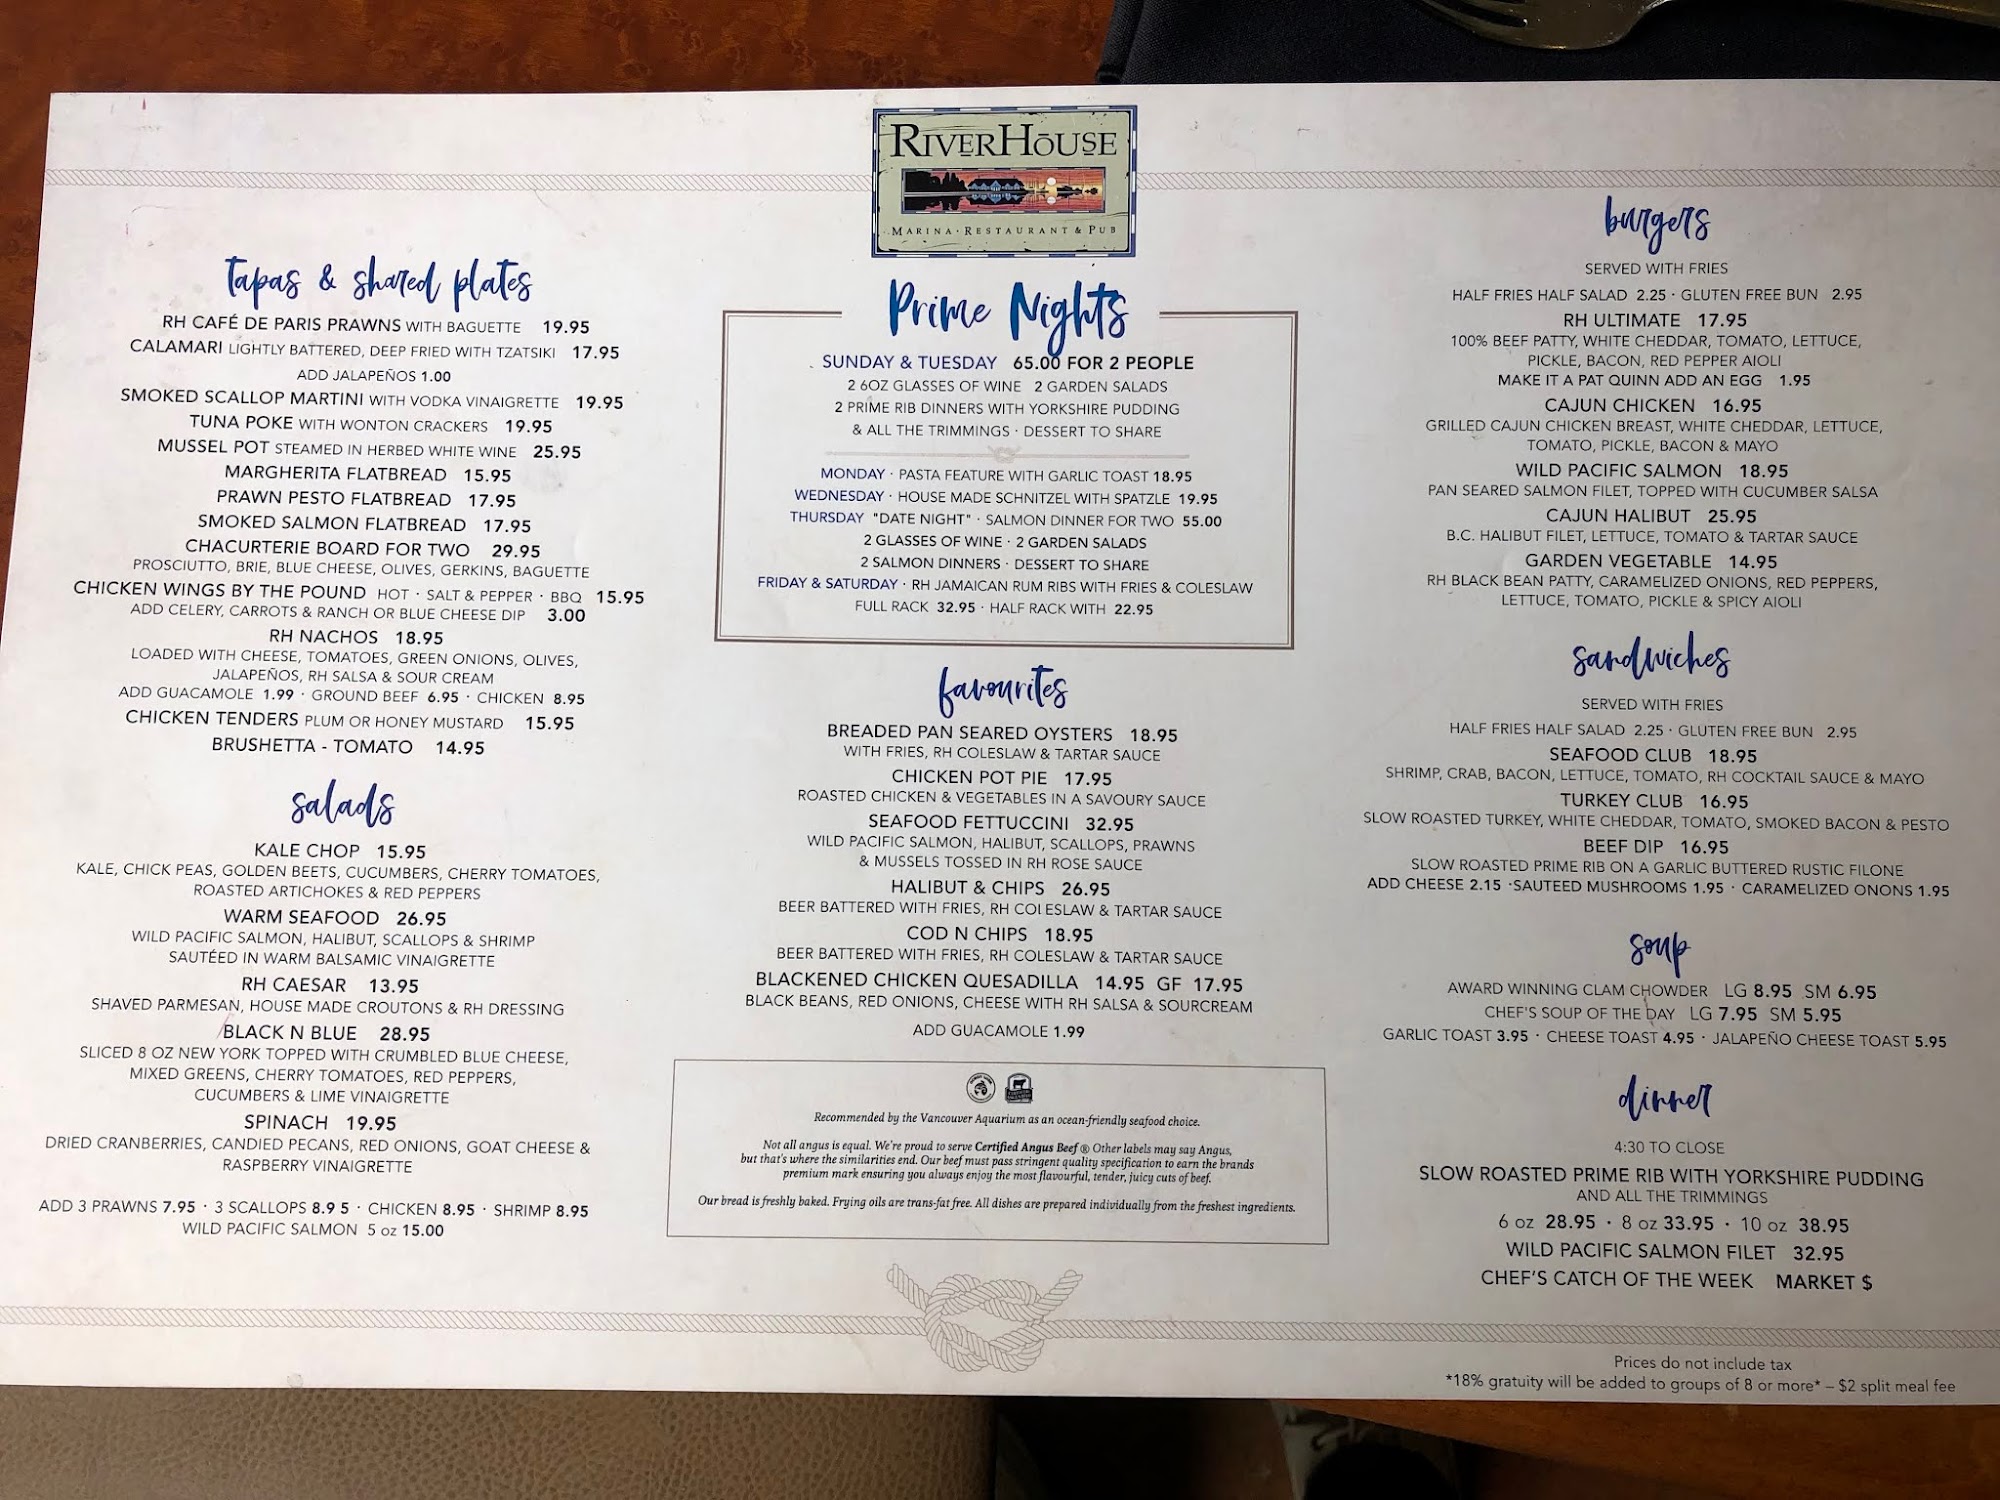 RIVERHOUSE
MARINA · RESTAURANT & PUB
tapas & shared plates
RH CAFÉ DE PARIS PRAWNS WITH BAGUETTE 19.95
CALAMARI LIGHTLY BATTERED, DEEP FRIED WITH TZATSIKI 17.95
ADD JALAPEÑOS 1.00
SMOKED SCALLOP MARTINI WITH VODKA VINAIGRETTE 19.95
TUNA POKE WITH WONTON CRACKERS 19.95
MUSSEL POT STEAMED IN HERBED WHITE WINE 25.95
MARGHERITA FLATBREAD 15.95
PRAWN PESTO FLATBREAD 17.95
SMOKED SALMON FLATBREAD 17.95
CHACURTERIE BOARD FOR TWO 29.95
PROSCIUTTO, BRIE, BLUE CHEESE, OLIVES, GERKINS, BAGUETTE
CHICKEN WINGS BY THE POUND HOT · SALT & PEPPER · BBQ 15.95
ADD CELERY, CARROTS & RANCH OR BLUE CHEESE DIP 3.00
RH NACHOS 18.95
LOADED WITH CHEESE, TOMATOES, GREEN ONIONS, OLIVES,
JALAPEÑOS, RH SALSA & SOUR CREAM
ADD GUACAMOLE 1.99 · GROUND BEEF 6.95 · CHICKEN 8.95
CHICKEN TENDERS PLUM OR HONEY MUSTARD 15.95
BRUSHETTA - TOMATO 14.95
salads
KALE CHOP 15.95
KALE, CHICK PEAS, GOLDEN BEETS, CUCUMBERS, CHERRY TOMATOES,
ROASTED ARTICHOKES & RED PEPPERS
WARM SEAFOOD 26.95
WILD PACIFIC SALMON, HALIBUT, SCALLOPS & SHRIMP
SAUTÉED IN WARM BALSAMIC VINAIGRETTE
RH CAESAR 13.95
SHAVED PARMESAN, HOUSE MADE CROUTONS & RH DRESSING
BLACK N BLUE 28.95
SLICED 8 OZ NEW YORK TOPPED WITH CRUMBLED BLUE CHEESE,
MIXED GREENS, CHERRY TOMATOES, RED PEPPERS,
CUCUMBERS & LIME VINAIGRETTE
SPINACH 19.95
DRIED CRANBERRIES, CANDIED PECANS, RED ONIONS, GOAT CHEESE &
RASPBERRY VINAIGRETTE
ADD 3 PRAWNS 7.95 · 3 SCALLOPS 8.9 5 · CHICKEN 8.95 · SHRIMP 8.95
WILD PACIFIC SALMON 5 oz 15.00
Prime Nights
SUNDAY & TUESDAY 65.00 FOR 2 PEOPLE
2 6OZ GLASSES OF WINE 2 GARDEN SALADS
2 PRIME RIB DINNERS WITH YORKSHIRE PUDDING
& ALL THE TRIMMINGS · DESSERT TO SHARE
MONDAY · PASTA FEATURE WITH GARLIC TOAST 18.95
WEDNESDAY · HOUSE MADE SCHNITZEL WITH SPATZLE 19.95
THURSDAY "DATE NIGHT" · SALMON DINNER FOR TWO 55.00
2 GLASSES OF WINE · 2 GARDEN SALADS
2 SALMON DINNERS · DESSERT TO SHARE
FRIDAY & SATURDAY · RH JAMAICAN RUM RIBS WITH FRIES & COLESLAW
FULL RACK 32.95 · HALF RACK WITH 22.95
favourites
BREADED PAN SEARED OYSTERS 18.95
WITH FRIES, RH COLESLAW & TARTAR SAUCE
CHICKEN POT PIE 17.95
ROASTED CHICKEN & VEGETABLES IN A SAVOURY SAUCE
SEAFOOD FETTUCCINI 32.95
WILD PACIFIC SALMON, HALIBUT, SCALLOPS, PRAWNS
& MUSSELS TOSSED IN RH ROSE SAUCE
HALIBUT & CHIPS 26.95
BEER BATTERED WITH FRIES, RH COLESLAW & TARTAR SAUCE
COD N CHIPS 18.95
BEER BATTERED WITH FRIES, RH COLESLAW & TARTAR SAUCE
BLACKENED CHICKEN QUESADILLA 14.95 GF 17.95
BLACK BEANS, RED ONIONS, CHEESE WITH RH SALSA & SOURCREAM
ADD GUACAMOLE 1.99
Recommended by the Vancouver Aquarium as an ocean-friendly seafood choice.
Not all angus is equal. We're proud to serve Certified Angus Beef ® Other labels may say Angus,
but that's where the similarities end. Our beef must pass stringent quality specification to earn the brands
premium mark ensuring you always enjoy the most flavourful, tender, juicy cuts of beef.
Our bread is freshly baked. Frying oils are trans-fat free. All dishes are prepared individually from the freshest ingredients.
burgers
SERVED WITH FRIES
HALF FRIES HALF SALAD 2.25 · GLUTEN FREE BUN 2.95
RH ULTIMATE 17.95
100% BEEF PATTY, WHITE CHEDDAR, TOMATO, LETTUCE,
PICKLE, BACON, RED PEPPER AIOLI
MAKE IT A PAT QUINN ADD AN EGG 1.95
CAJUN CHICKEN 16.95
GRILLED CAJUN CHICKEN BREAST, WHITE CHEDDAR, LETTUCE,
TOMATO, PICKLE, BACON & MAYO
WILD PACIFIC SALMON 18.95
PAN SEARED SALMON FILET, TOPPED WITH CUCUMBER SALSA
CAJUN HALIBUT 25.95
B.C. HALIBUT FILET, LETTUCE, TOMATO & TARTAR SAUCE
GARDEN VEGETABLE 14.95
RH BLACK BEAN PATTY, CARAMELIZED ONIONS, RED PEPPERS,
LETTUCE, TOMATO, PICKLE & SPICY AIOLI
sandwiches
SERVED WITH FRIES
HALF FRIES HALF SALAD 2.25 · GLUTEN FREE BUN 2.95
SEAFOOD CLUB 18.95
SHRIMP, CRAB, BACON, LETTUCE, TOMATO, RH COCKTAIL SAUCE & MAYO
TURKEY CLUB 16.95
SLOW ROASTED TURKEY, WHITE CHEDDAR, TOMATO, SMOKED BACON & PESTO
BEEF DIP 16.95
SLOW ROASTED PRIME RIB ON A GARLIC BUTTERED RUSTIC FILONE
ADD CHEESE 2.15 · SAUTEED MUSHROOMS 1.95 · CARAMELIZED ONONS 1.95
soup
AWARD WINNING CLAM CHOWDER LG 8.95 SM 6.95
CHEF'S SOUP OF THE DAY LG 7.95 SM 5.95
GARLIC TOAST 3.95 · CHEESE TOAST 4.95 · JALAPEÑO CHEESE TOAST 5.95
dinner
4:30 TO CLOSE
SLOW ROASTED PRIME RIB WITH YORKSHIRE PUDDING
AND ALL THE TRIMMINGS
6 oz 28.95 · 8 oz 33.95 · 10 oz 38.95
WILD PACIFIC SALMON FILET 32.95
CHEF'S CATCH OF THE WEEK MARKET $
Prices do not include tax
*18% gratuity will be added to groups of 8 or more* – $2 split meal fee